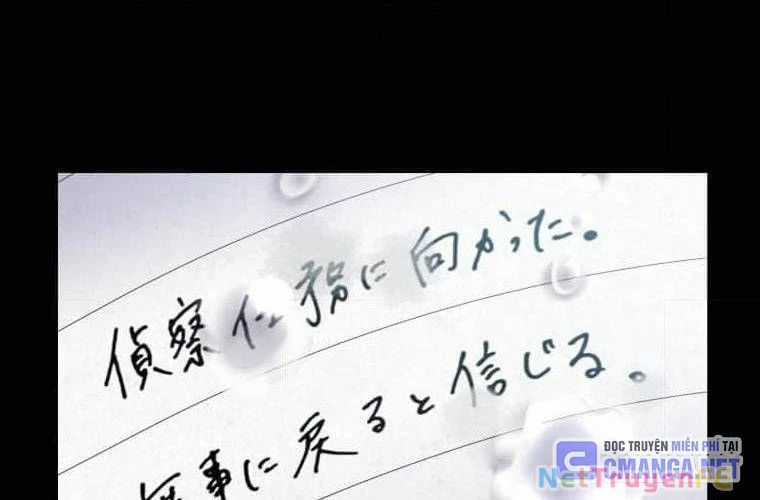 偵察任務に向かった。
無事に戻ると信じる。
ĐỌC TRUYỆN MIỄN PHÍ TẠI
CMANGA.NET
NetTruyen